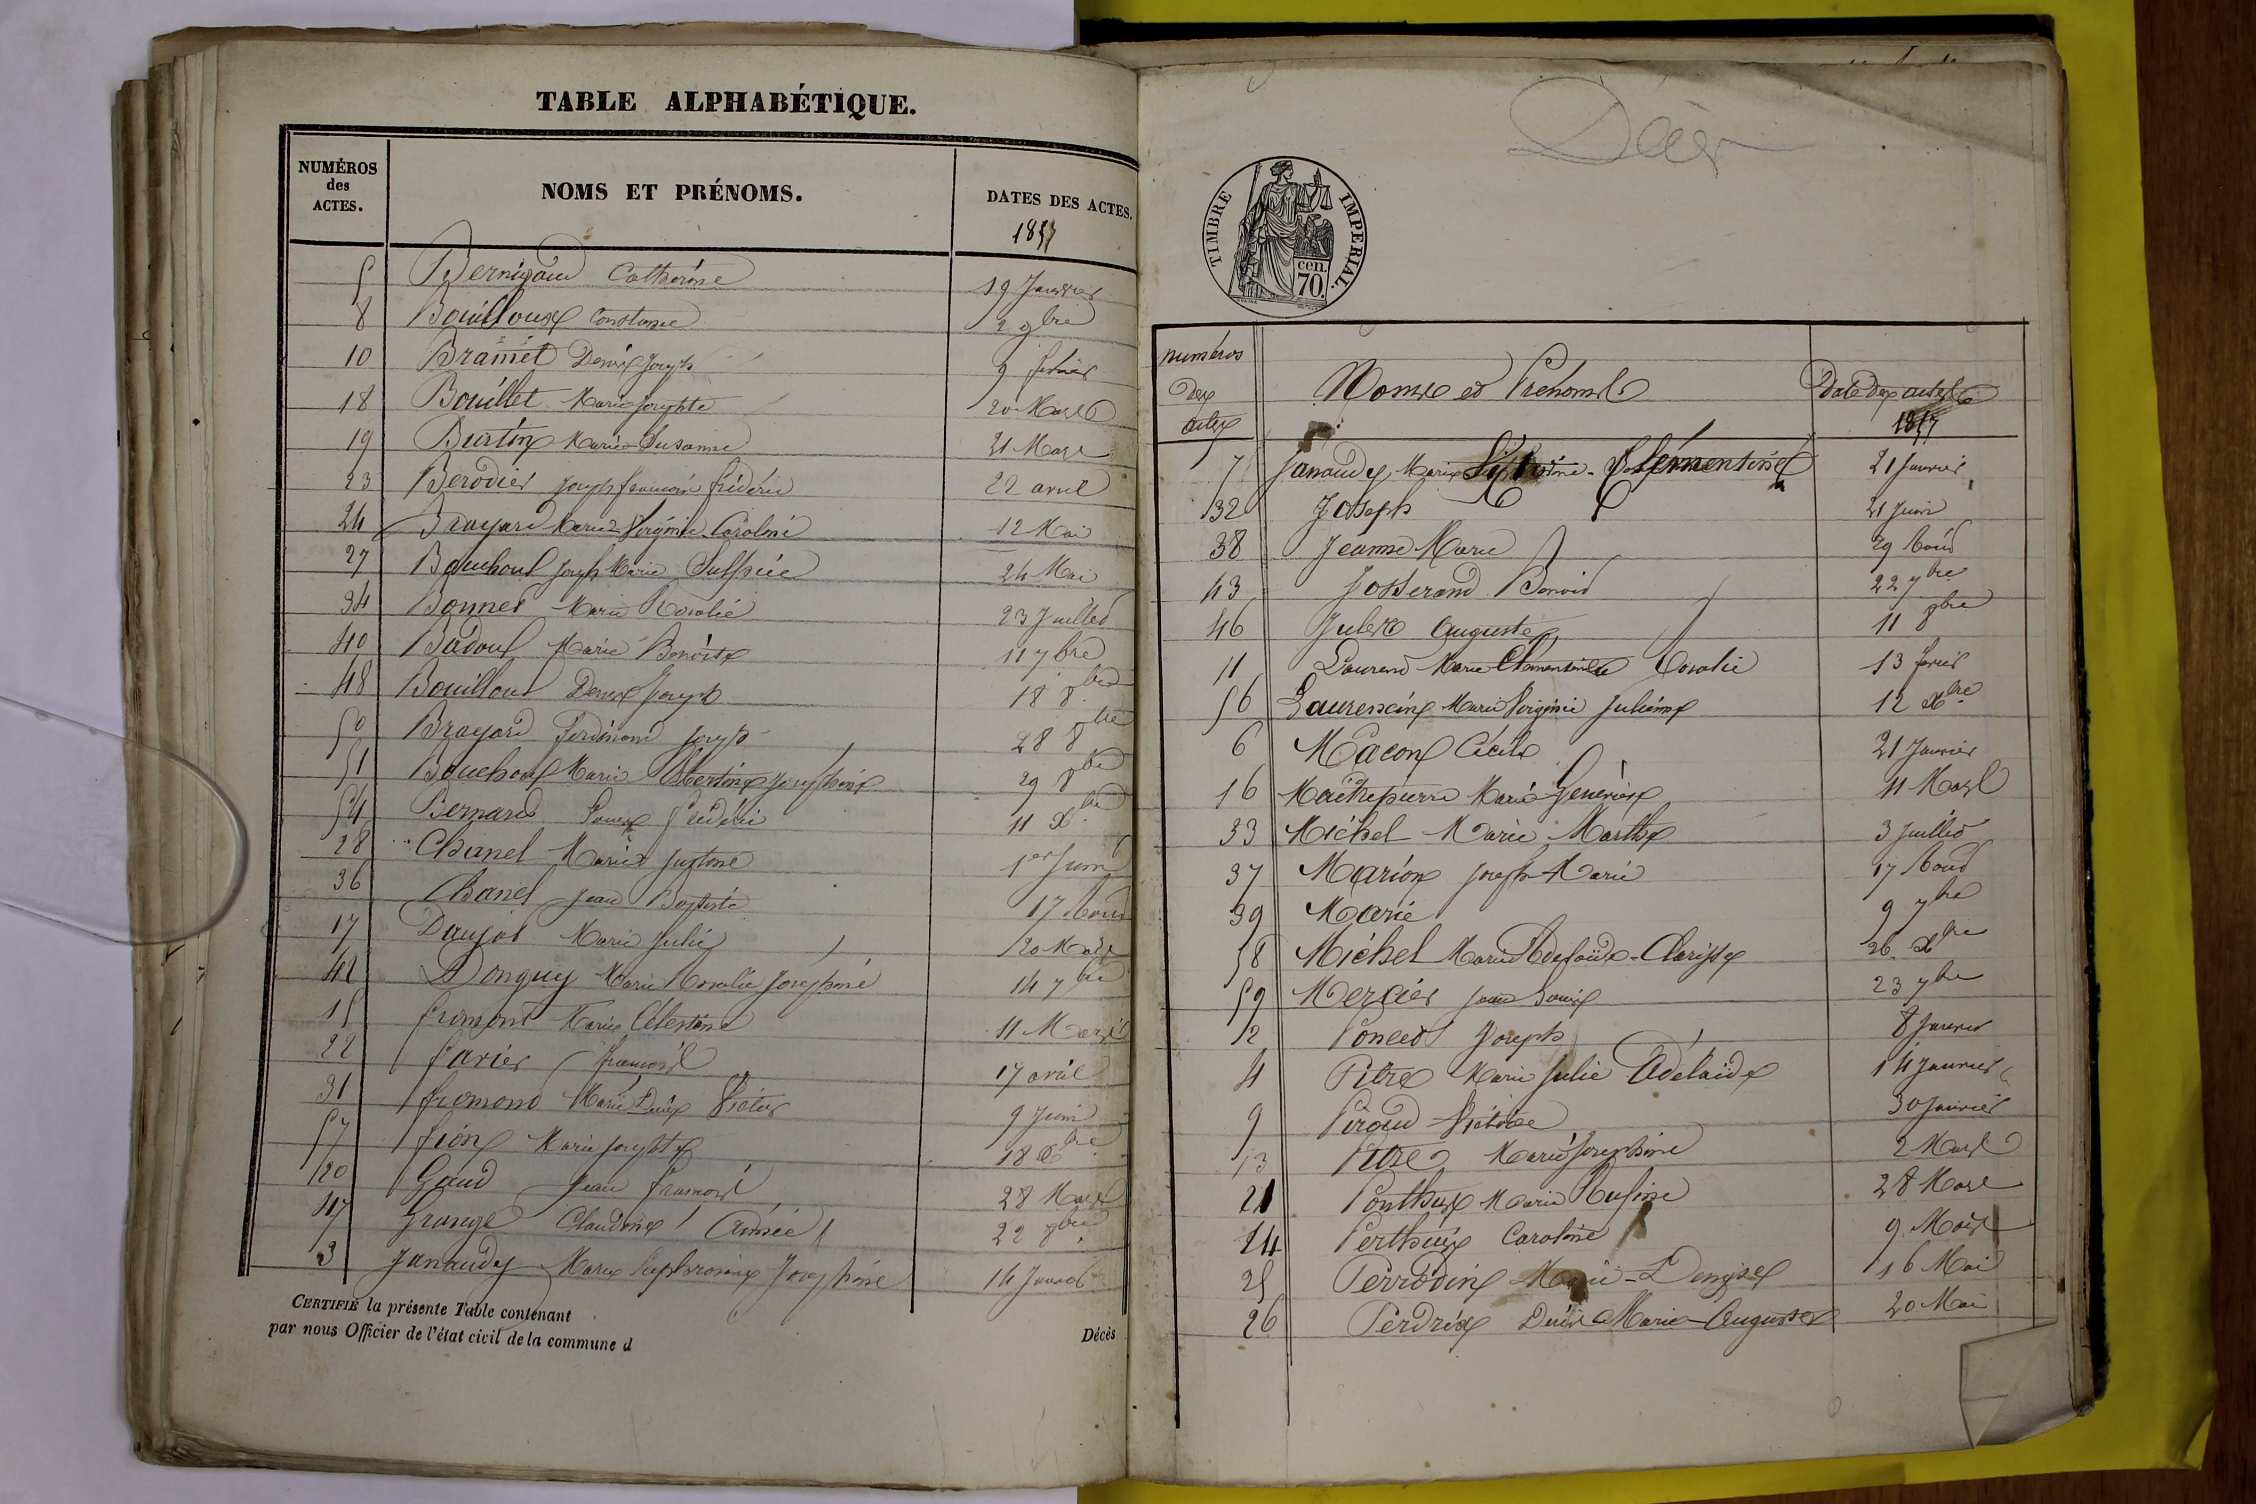 TABLE ALPHABÉTIQUE.
NUMÉROS
des
ACTES.
NOMS ET PRÉNOMS.
DATES DES ACTES.
1857
5 Bernigaud Catherine 19 Janvier
8 Bouilloux Constance 2 9bre
10 Bramet Denis Joseph 9 février
18 Bouillet Marie Josephte 20 Mars
19 Burtin Marie Susanne 21 Mars
23 Berodier Joseph françois frédéric 22 avril
24 Brayard Marie Virginie Caroline 12 Mai
27 Bouchoul Joseph Marie Sulpice 24 Mai
34 Bonnet Marie Rosalie 23 Juillet
40 Badoul Marie Benoite 11 7bre
48 Bouilloux Denis Joseph 18 8bre
50 Brayard Ferdinand Joseph 28 8bre
51 Bouchoux Marie Albertine Josephine 29 8bre
54 Bernard Louis Frédéric 11 Xbre
28 Chanel Marie Justine 1er Juin
36 Chanel Jean Baptiste 17 Aout
17 Daujat Marie Julie 20 Mars
42 Donguy Marie Rosalie Josephine 14 7bre
15 fromont Marie Célestine 11 Mars
22 favier françois 17 avril
31 fromond Marie Denis Victor 9 Juin
57 fion Marie Josephte 18 Xbre
20 Gaud Jean François 28 Mars
47 Grange Claudine Aimée 22 8bre
3 Janaudy Marie Euphrosine Josephine 14 Janvier
CERTIFIÉ la présente Table contenant
par nous Officier de l'état civil de la commune d
Décès
Décès
TIMBRE IMPERIAL.
cen.
70.
numéros
des
actes
Noms et Prénoms
Date des actes
1857
7 Janaudy Marie Clémentine 21 Janvier
32 Joseph 21 Juin
38 Jeanne Marie 29 Aout
43 Josserand Benoit 22 7bre
46 Jules Auguste 11 8bre
11 Laurend Marie Clementine Rosalie 13 février
56 Laurensin Marie Virginie Julienne 12 Xbre
6 Macon Cécile 21 Janvier
16 Maitrepierre Marie Geneviève 11 Mars
33 Michel Marie Marthe 3 Juillet
37 Marion Joseph Marie 17 Aout
39 Marie 9 7bre
58 Michel Marie Adelaïde Clarisse 26 Xbre
59 Mercier Jean Louis 23 7bre
2 Poncet Joseph 8 Janvier
4 Pitre Marie Julie Adelaïde 14 Janvier
9 Piroud Victoire 30 Janvier
13 Pitre Marie Josephine 2 Mars
21 Ponthus Marie Rufine 28 Mars
24 Perthuis Caroline 9 Mars
25 Perrodin Marie Denyse 16 Mai
26 Perdrix Denis Marie Auguste 20 Mai